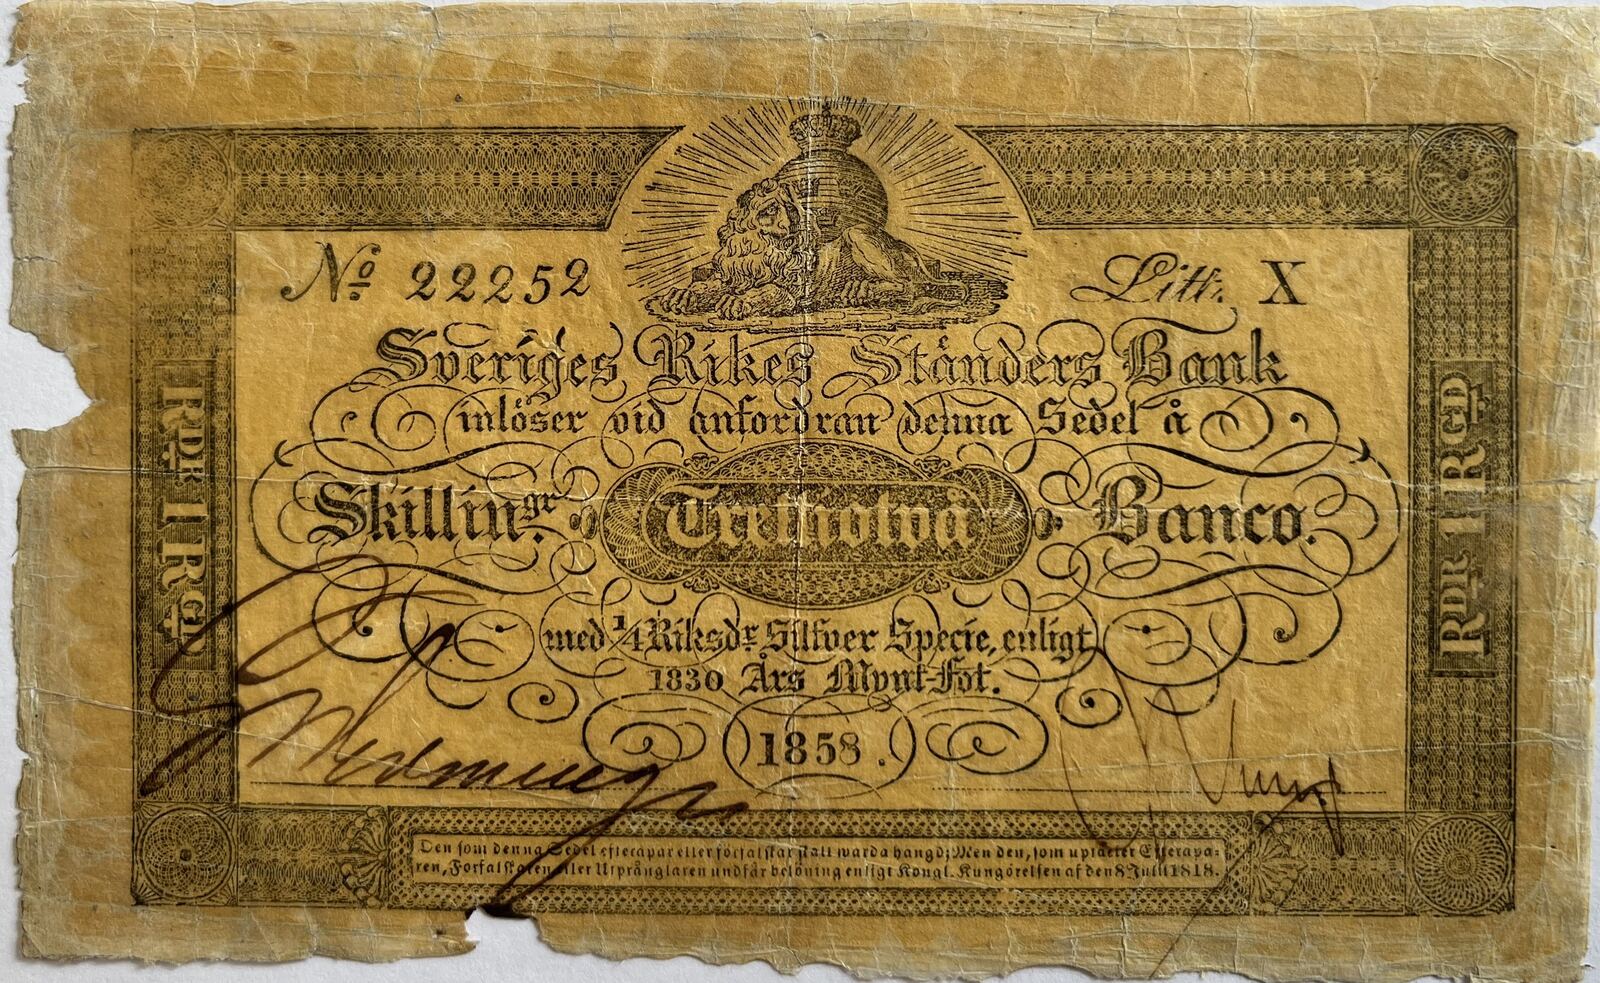 No 22252
Litt. X
Sveriges Rikes Ständers Bank
inlöser vid anfordran denna Sedel å
Skillingr Trettiotvå Banco.
med 1/4 Riksdr Silfver Specie, enligt
1830 Års Mynt-Fot.
1858.
RDR 1 RGD
RDR 1 RGD
Den som denna Sedel efterapar eller förfalskar skall warda hängd; Men den, som uptäcker Efterapa-
ren, Förfalskaren eller Utprånglaren undfår belöning enligt Kongl. Kungörelsen af den 8 Julii 1818.